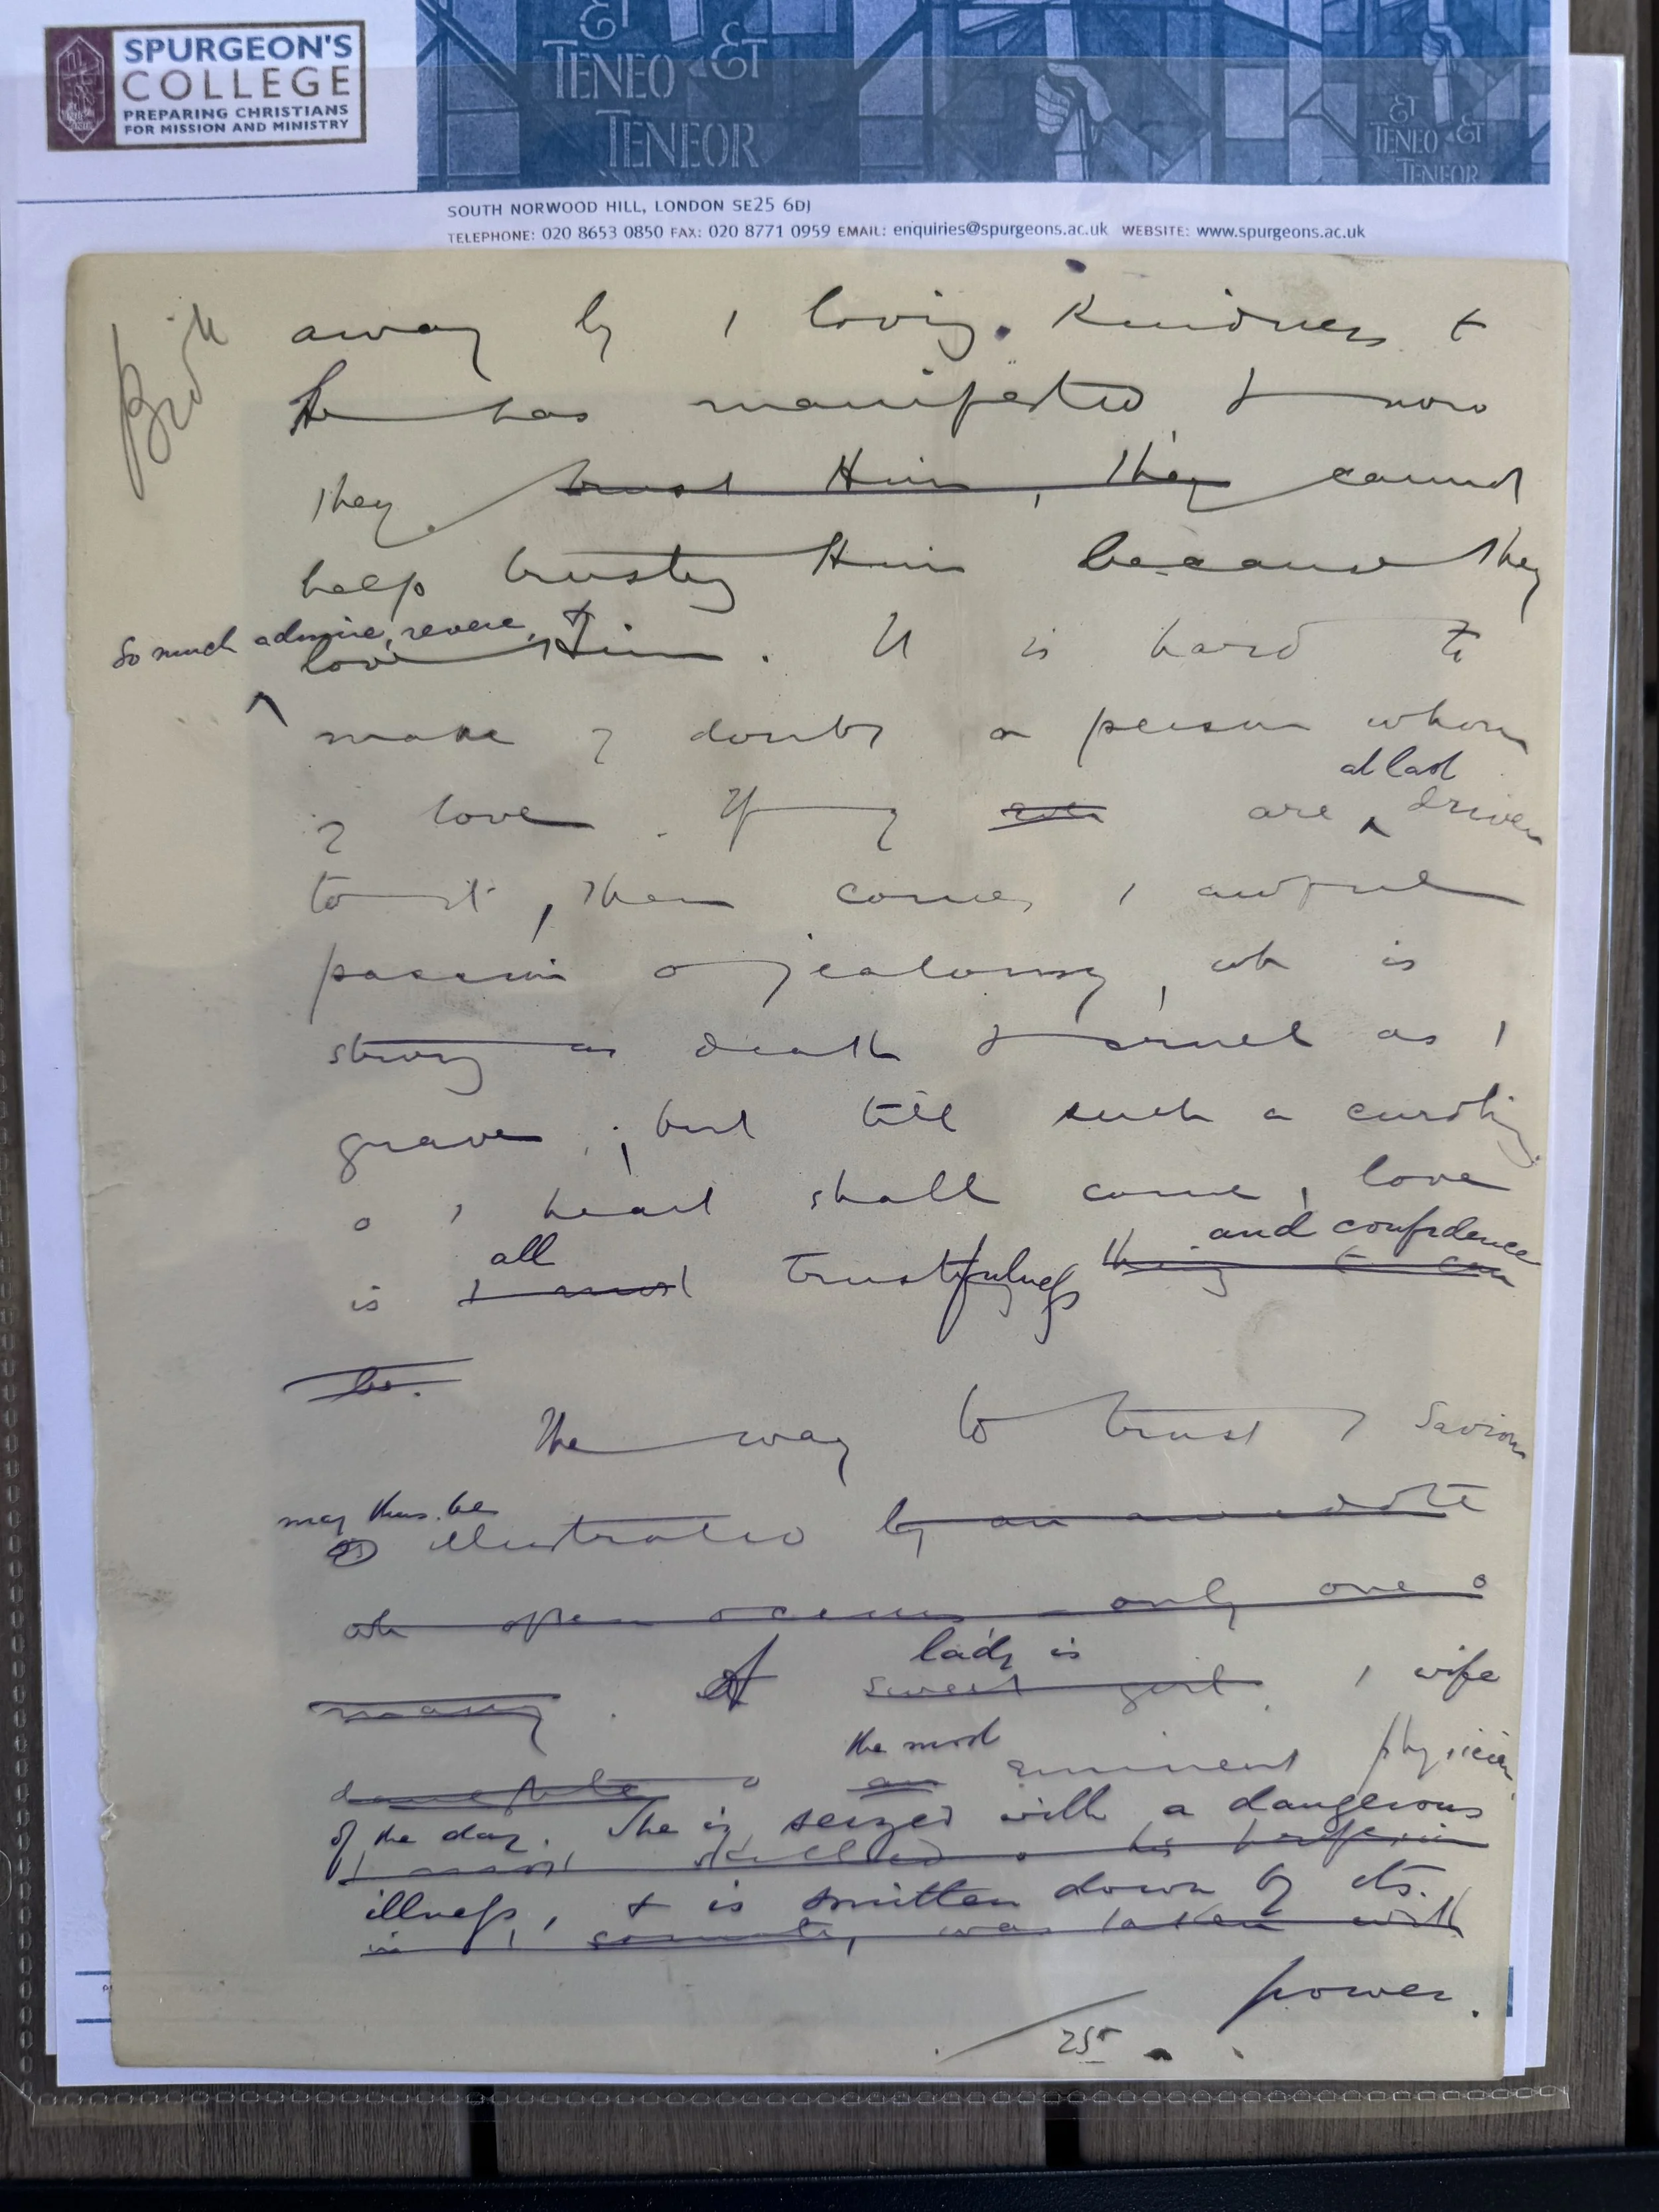 SPURGEON'S
COLLEGE
PREPARING CHRISTIANS
FOR MISSION AND MINISTRY
ET
TENEO & ET
TENEOR
ET
TENEO & ET
TENEOR
SOUTH NORWOOD HILL, LONDON SE25 6DJ
TELEPHONE: 020 8653 0850 FAX: 020 8771 0959 EMAIL: enquiries@spurgeons.ac.uk WEBSITE: www.spurgeons.ac.uk
away by / loving kindness t
He has manifested & now
they trust Him, they cannot
help trusting Him because they
so much admire, revere, &
love Him. It is hard to
make y doubt a person whom
y love. If y are at last driven
to it, then comes / awful
passion o jealousy, wh is
strong as death & cruel as /
grave; but till such a curdling
o / heart shall come, love
all and confidence
is / most trustfulness thing t can
be.
The way to trust / Saviour
may thus be
illustrated by an anecdote
wh often occurs - only one o
lady is
many. A sweet girl, / wife
the most
daughter o an eminent physician
of the day. She is seized with a dangerous
/ most skilled o his profession
illness, & is smitten down by its
in / country, was taken with
power.
25